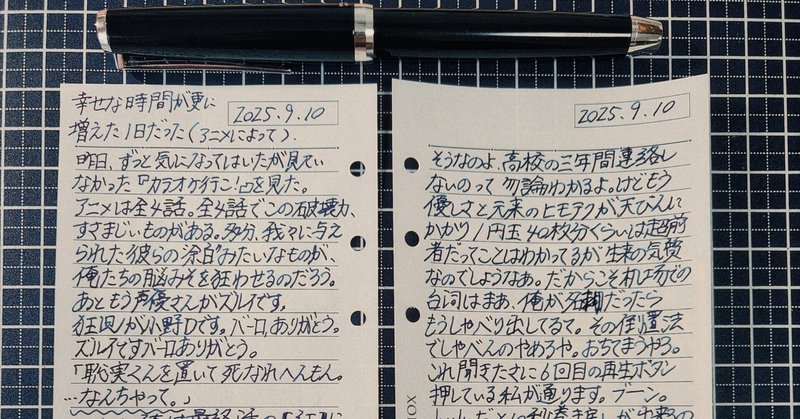 幸せな時間が更に
2025.9.10
増えた1日だった(アニメによって).
昨日、ずっと気になってはいたが見てい
なかった『カラオケ行こ!』を見た。
アニメは全4話。全4話でこの破壊力、
すさまじいものがある。多分、我々に与え
られた彼らの余白みたいなものが、
俺たちの脳みそを狂わせるのだろう。
あともう声優さんがズルイです。
狂児が小野Dです。バーロ、ありがとう。
ズルイですバーロありがとう。
「聡実くんを置いて死なれへんもん。
…なんちゃって。」
2025.9.10
そうなのよ、高校の三年間連絡し
ないのって勿論わかるよ。けどもう
優しさと元来のヒモテクが天びんに
かかり1円玉40枚分くらいは超前
者だってことはわかってるが生来の気質
なのでしょうなあ。だからこそ机工場での
台詞はまあ、俺が
だったら
もうしゃべり出してるて。その倒置法
でしゃべんのやめろや。おちてまうやろ。
これ聞きたさに6回目の再生ボタン
押している私が通ります。ブーン。